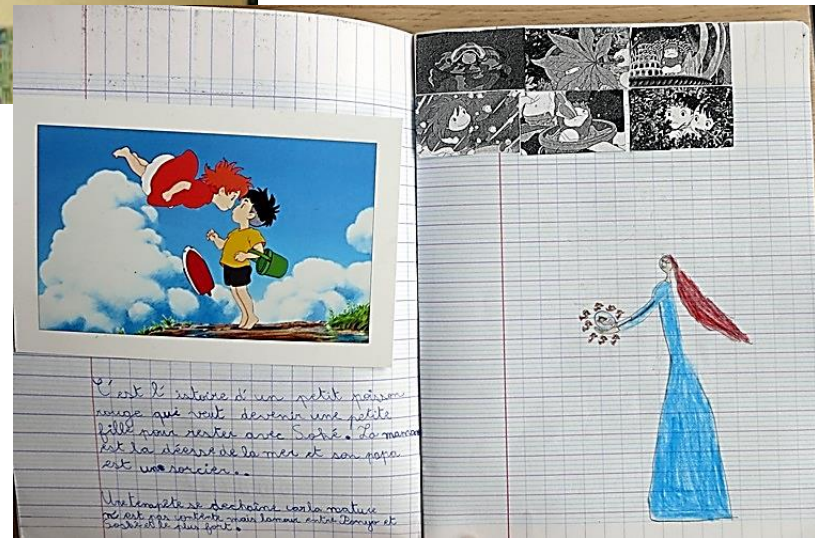 C'est l'istoire d'un petit poisson
rouge qui veut devenir une petite
fille pour rester avec Soské. La maman
est la déesse de la mer et son papa
est un sorcier..
Une tempête se dechaîne car la nature
n'est pas contente mais lamour entre Ponyo et
Soské et le plus fort.